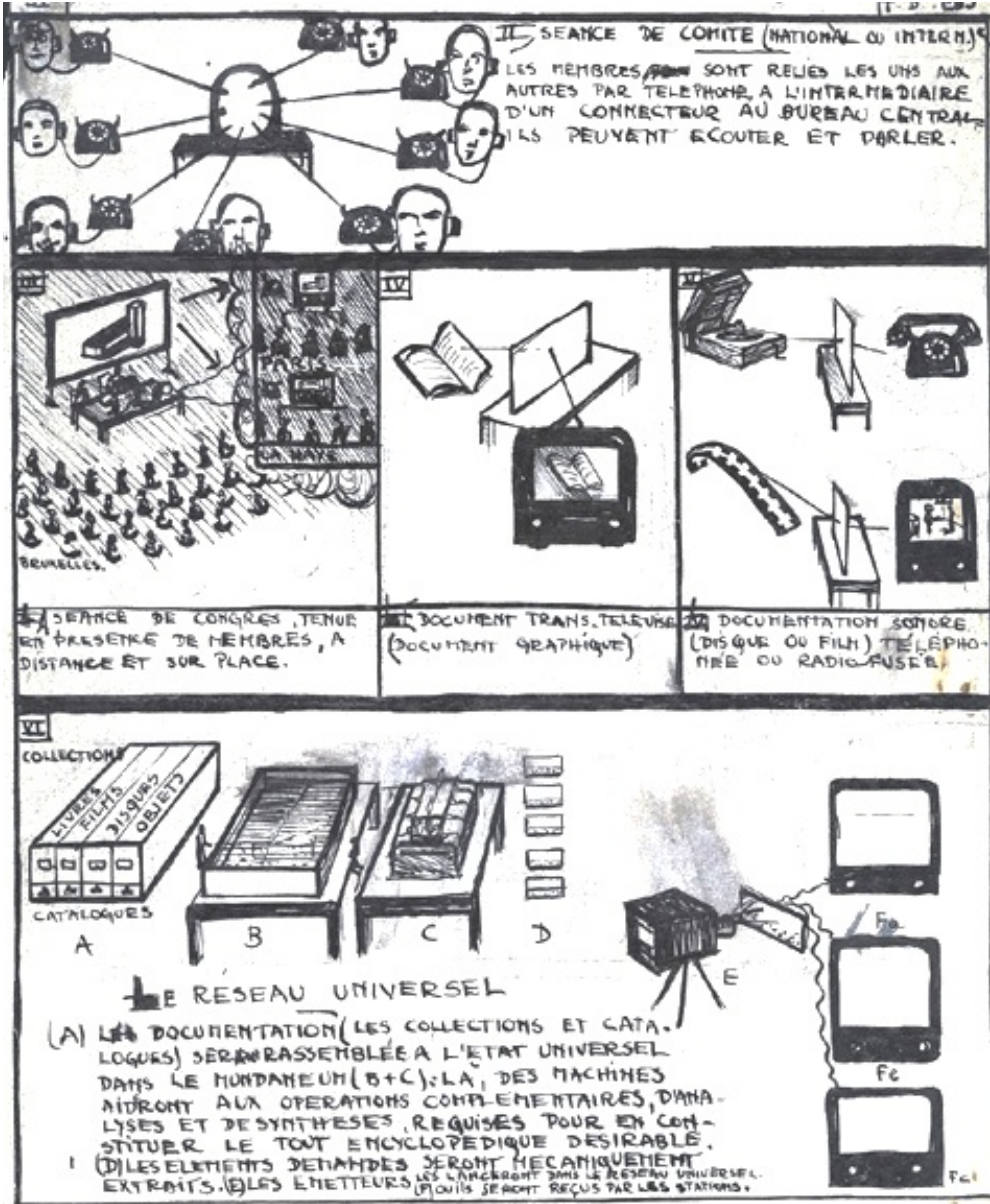 II SEANCE DE COMITE (NATIONAL OU INTERN)
LES MEMBRES SONT RELIES LES UNS AUX
AUTRES PAR TELEPHONE, A L'INTERMEDIAIRE
D'UN CONNECTEUR AU BUREAU CENTRAL
ILS PEUVENT ECOUTER ET PARLER.
III
PARIS
LA HAYE
BRUXELLES.
SEANCE DE CONGRES, TENUE
EN PRESENCE DE MEMBRES, A
DISTANCE ET SUR PLACE.
IV
DOCUMENT TRANS. TELEVISE
(DOCUMENT GRAPHIQUE)
V
DOCUMENTATION SONORE
(DISQUE OU FILM) TELEPHO-
NEE OU RADIO-FUSEE.
VI
COLLECTIONS
LIVRES
FILMS
DISQUES
OBJETS
CATALOGUES
A
B
C
D
E
Fa
Fc
Fc
LE RESEAU UNIVERSEL
(A) LA DOCUMENTATION (LES COLLECTIONS ET CATA-
LOGUES) SERA RASSEMBLEE A L'ETAT UNIVERSEL
DANS LE MUNDANEUM (B+C). LA, DES MACHINES
AIDRONT AUX OPERATIONS COMPLEMENTAIRES, D'ANA-
LYSES ET DE SYNTHESES, REQUISES POUR EN CON-
STITUER LE TOUT ENCYCLOPEDIQUE DESIRABLE.
(D) LES ELEMENTS DEMANDES SERONT MECANIQUEMENT
EXTRAITS. (E) LES EMETTEURS LES LANCERONT DANS LE RESEAU UNIVERSEL.
(F) OU ILS SERONT REÇUS PAR LES STATIONS.